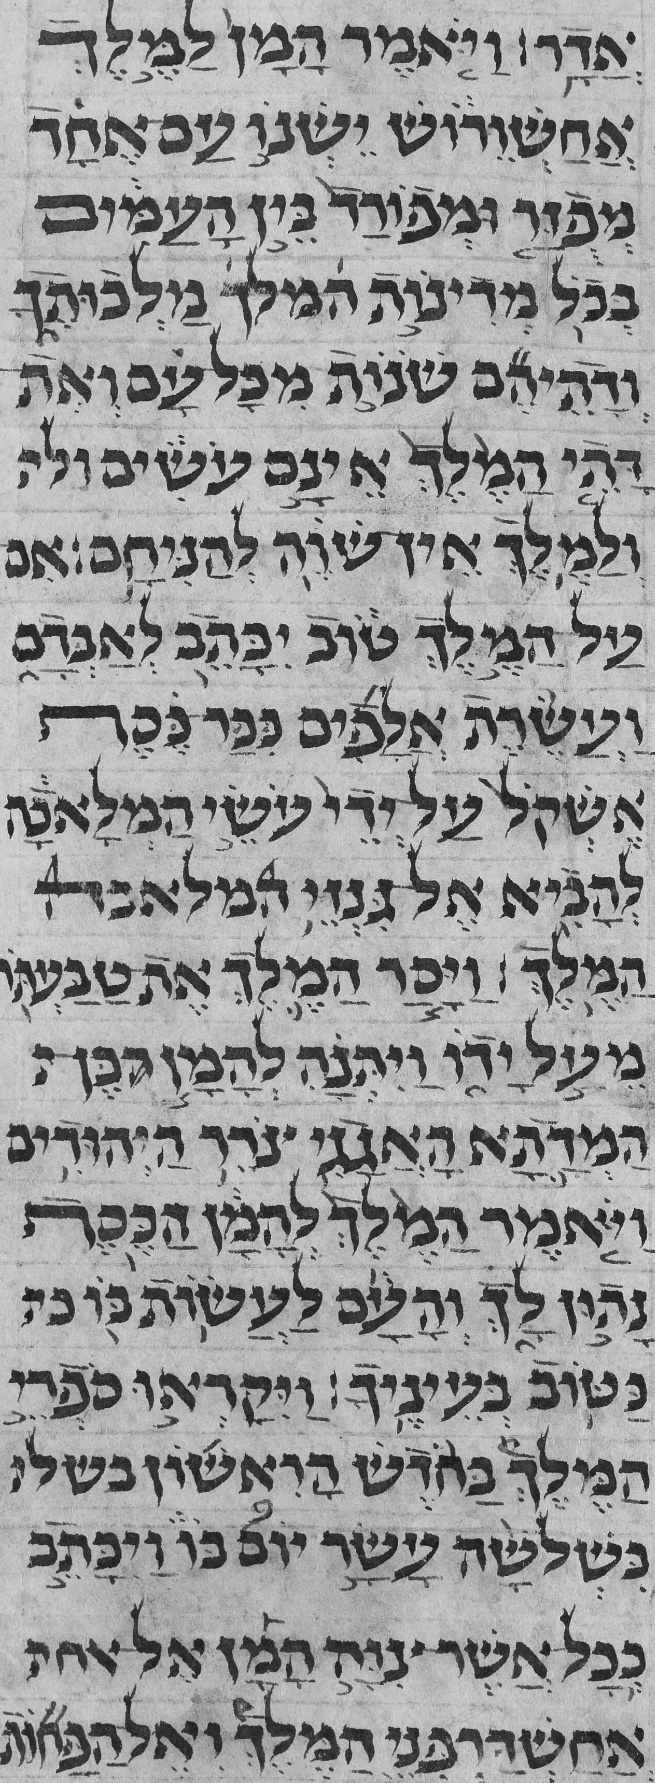 אֲדָר׃ וַיֹּאמֶר הָמָן לַמֶּלֶךְ
אֲחַשְׁוֵרוֹשׁ יֶשְׁנוֹ עַם אֶחָד
מְפֻזָּר וּמְפוֹרָד בֵּין הָעַמִּים
בְּכֹל מְדִינוֹת המלך מַלְכוּתֶךָ
וְדָתֵיהֶם שֹׁנוֹת מִכָּל עָם וְאֶת
דָּתֵי הַמֶּלֶךְ אֵינָם עֹשִׂים ולי
וְלַמֶּלֶךְ אֵין שׁוֶֹה לְהַנִּיחָם׃ אִם
עַל הַמֶּלֶךְ טוֹב יִכָּתֵב לְאַבְּדָם
וַעֲשֶׂרֶת אֲלָפִים כִּכַּר כֶּסֶף
אֶשְׁקוֹל עַל יְדֵי עֹשֵׂי הַמְּלָאכָה
לְהָבִיא אֶל גִּנְזֵי המלאכה
הַמֶּלֶךְ׃ וַיָּסַר הַמֶּלֶךְ אֶת טַבַּעְתּוֹ
מֵעַל יָדוֹ וַיִּתְּנָהּ לְהָמָן בֶּן
הַמְּדָתָא הָאֲגָגִי צֹרֵר הַיְּהוּדִים
וַיֹּאמֶר הַמֶּלֶךְ לְהָמָן הַכֶּסֶף
נָתוּן לָךְ וְהָעָם לַעֲשׂוֹת בּוֹ כי
כַּטּוֹב בְּעֵינֶיךָ׃ וַיִּקָּרְאוּ סֹפְרֵי
הַמֶּלֶךְ בַּחֹדֶשׁ הָרִאשׁוֹן בשלו
בִּשְׁלֹשָׁה עָשָׂר יוֹם בּוֹ וַיִּכָּתֵב
כְּכָל אֲשֶׁר צִוָּה הָמָן אֶל
אֲחַשְׁדַּרְפְּנֵי הַמֶּלֶךְ וְאֶל הַפַּחוֹת